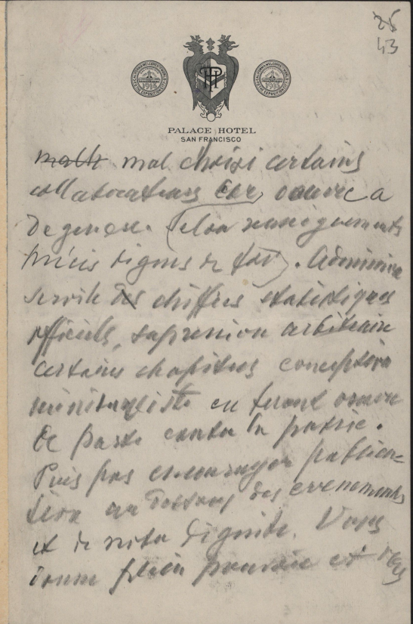 25
43
PALACE HOTEL
SAN FRANCISCO
mal choisi certains
collaborateurs œuvre a
degenere. (selon renseignements
précis dignes de foi).
servile des chiffres statistiques
officiels, supression arbitraire
certains chapitres conception
en faisant œuvre
de parti contre la patrie.
Puis pas encourager publica-
tion au dessous des evenements
et de notre dignité. Vous
donne plein pouvoir et